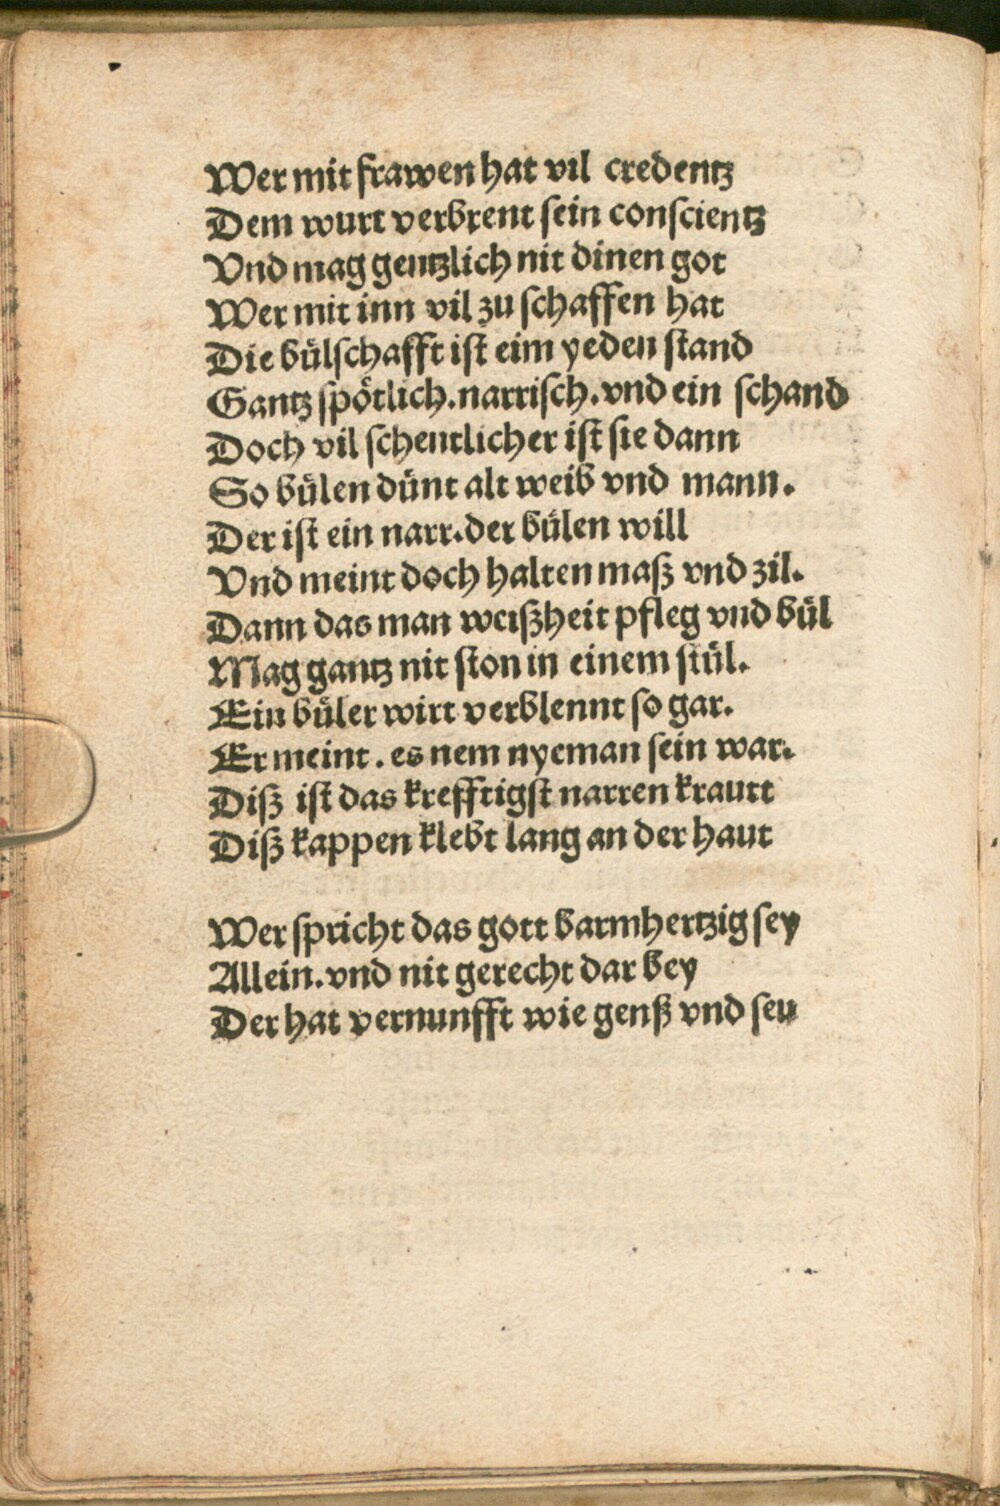 Wer mit frawen hat vil credentz
Dem wurt verbrent sein conscientz
Vnd mag gentzlich nit dinen got
Wer mit inn vil zu schaffen hat
Die bůlschafft ist eim yeden stand
Gantz spötlich.narrisch.vnd ein schand
Doch vil schentlicher ist sie dann
So bůlen důnt alt weib vnd mann.
Der ist ein narr.der bůlen will
Vnd meint doch halten maß vnd zil.
Dann das man weißheit pfleg vnd bůl
Mag gantz nit ston in einem stůl.
Ein bůler wirt verblennt so gar.
Er meint. es nem nyeman sein war.
Diß ist das krefftigst narren krautt
Diß kappen klebt lang an der haut
Wer spricht das gott barmhertzig sey
Allein.vnd nit gerecht dar bey
Der hat vernunfft wie genß vnd seu